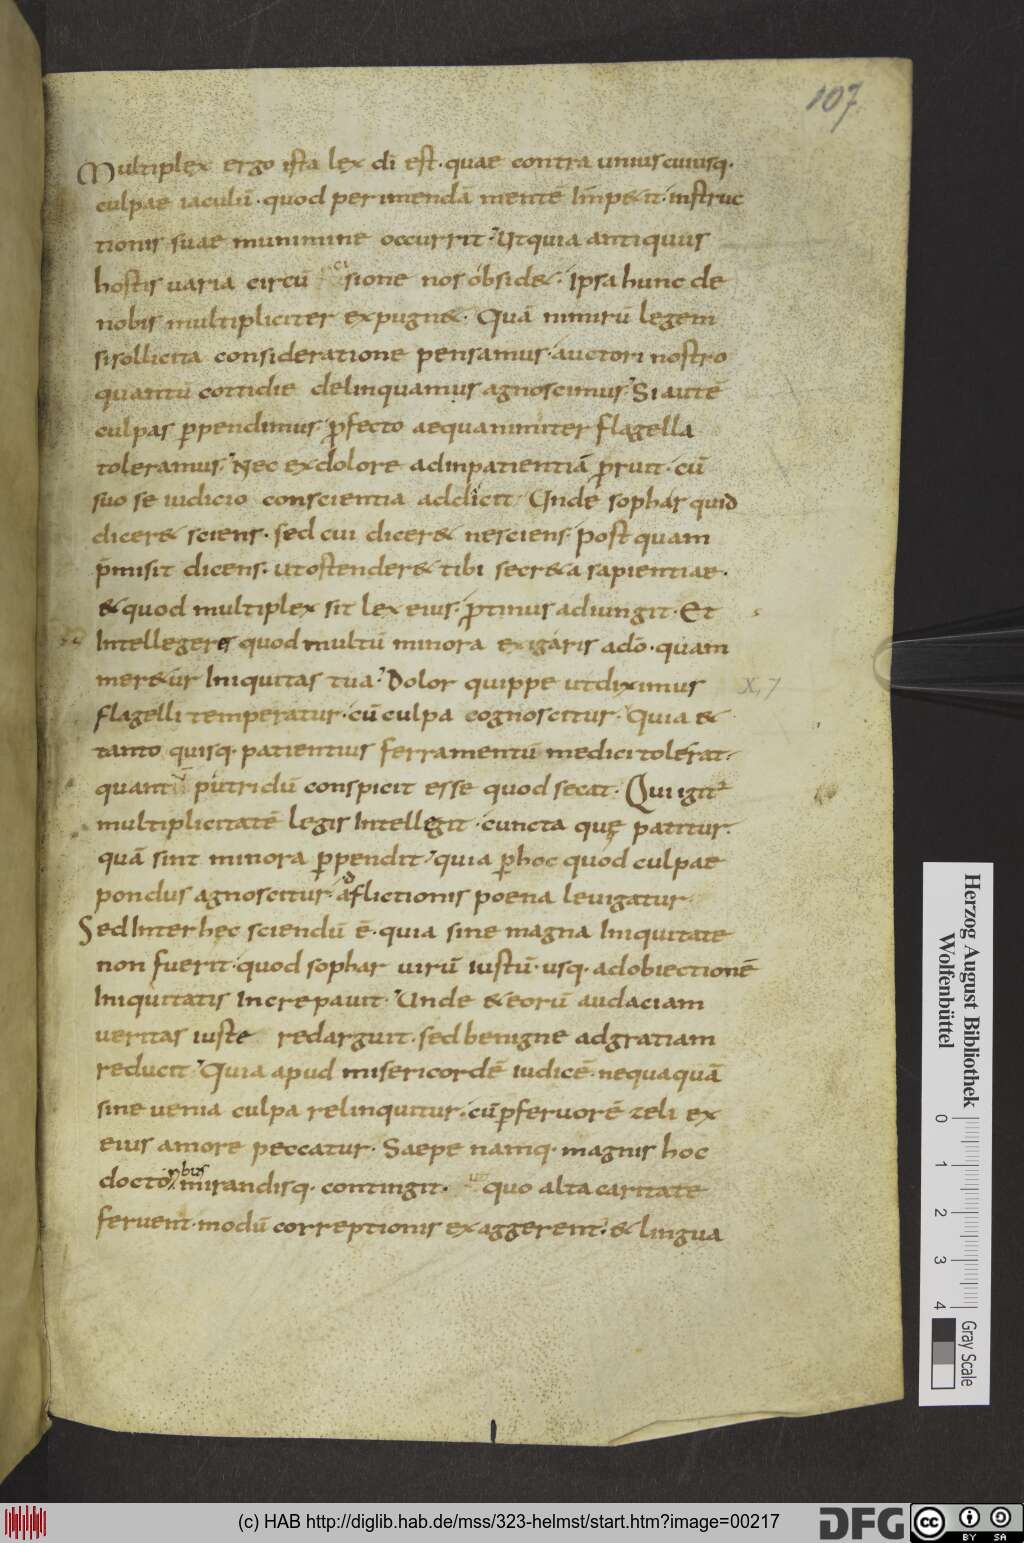 107
Multiplex ergo ista lex dī est· quae contra uniuscuiusq·
culpae iaculū· quod perimendā mentē Impetit· instruc
tionis suae munimine occurrit· Utquia antiquus
hostis uaria circū sione nos obsidet· Ipsa hunc de
nobis multipliciter expugnet· Quā nimirū legem
sisollicita consideratione pensamus· auctori nostro
quantū cottidie delinquamus agnoscimus· Si autē
culpas ꝑpendimus· ꝓfecto aequanimiter flagella
toleramus· Nec exdolore adinpatientiā ꝓruit· cū
suo se iudicio conscientia addicit· Unde sophar quid
diceret sciens· sed cui diceret nesciens· Postquam
p̄misit dicens· utostenderet tibi secreta sapientiae·
& quod multiplex sit lex eius· ꝓtinus adiungit· Et
Intellegeres quod multū minora exigaris adō· quam
meretur Iniquitas tua· Dolor quippe utdiximus
X, 7
flagelli temperatur· cū culpa cognoscitur· Quia &
tanto quisq· patientius ferramentū medici tolerat·
quantū putridū conspicit esse quod secat· Qui igit᷑
multiplicitatē legis Intellegit· cuncta quę patitur·
quā sint minora ꝑpendit· quia ꝑhoc quod culpae
pondus agnoscitur· adflictionis poena leuigatur·
Sed Inter hęc sciendū ē· quia sine magna Iniquitate
non fuerit· quod sophar uirū iustū· usq· adobiectionē
Iniquitatis Increpauit· Unde & eorū audaciam
ueritas iuste redarguit· sed benigne adgratiam
reducit· Quia apud misericordē iudicē· nequaquā
sine uenia culpa relinquitur· cū ꝑferuorē zeli ex
eius amore peccatur· Saepe namq· magnis hoc
doctoribus mirandisq· contingit· ut quo alta caritate
feruent· modū correptionis exaggerent· & lingua
Herzog August Bibliothek
Wolfenbüttel
0 1 2 3 4
Gray Scale
(c) HAB http://diglib.hab.de/mss/323-helmst/start.htm?image=00217
DFG
cc BY SA